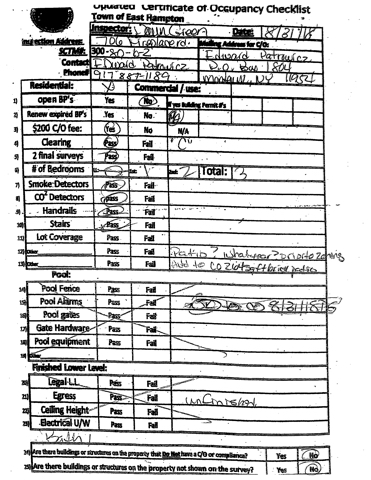 Updated Certificate of Occupancy Checklist
Town of East Hampton
Inspector: Date: 8/31/18
Inspection Address: 706 Mailing Address for C/O:
SCTM#: 300-80-6-2 Edward
Contact Edward P.O. Box 1804
Phone# 917 887-1189 NY 11954
Residential: Commercial / use:
1) open BP's Yes No If yes Building Permit #'s
2) Renew expired BP's Yes No
3) $200 C/O fee: Yes No N/A
4) Clearing Pass Fail "C"
5) 2 final surveys Pass Fail
6) # of Bedrooms 1st: 1 2nd: 2 Total: 3
7) Smoke Detectors Pass Fail
8) CO² Detectors Pass Fail
9) Handrails Pass Fail
10) Stairs Pass Fail
11) Lot Coverage Pass Fail
12) Other Pass Fail Patio? what year? prior to zoning
13) Other Pass Fail Add to CO 206 sq ft brick patio
Pool:
14) Pool Fence Pass Fail
15) Pool Alarms Pass Fail OK to CO 8/31/18
16) Pool gates Pass Fail
17) Gate Hardware Pass Fail
18) Pool equipment Pass Fail
19) Other
Finished Lower Level:
20) Legal LL Pass Fail
21) Egress Pass Fail unfinished
22) Ceiling Height Pass Fail
23) Electrical U/W Pass Fail
Bath 1
24) Are there buildings or structures on the property that Do Not have a C/O or compliance? Yes No
25) Are there buildings or structures on the property not shown on the survey? Yes No